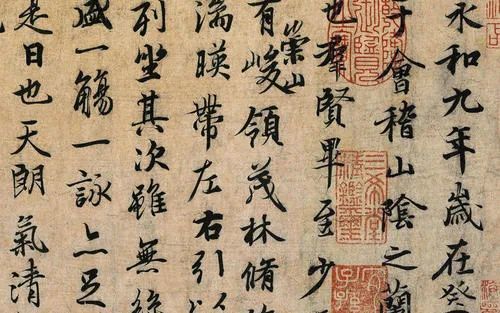 永和九年歲在癸
于會稽山陰之蘭
也羣賢畢至少
有崇山峻領茂林脩
湍暎帶左右引以
列坐其次雖無絲
盛一觴一詠亦足
是日也天朗氣清
三希堂精鑑璽